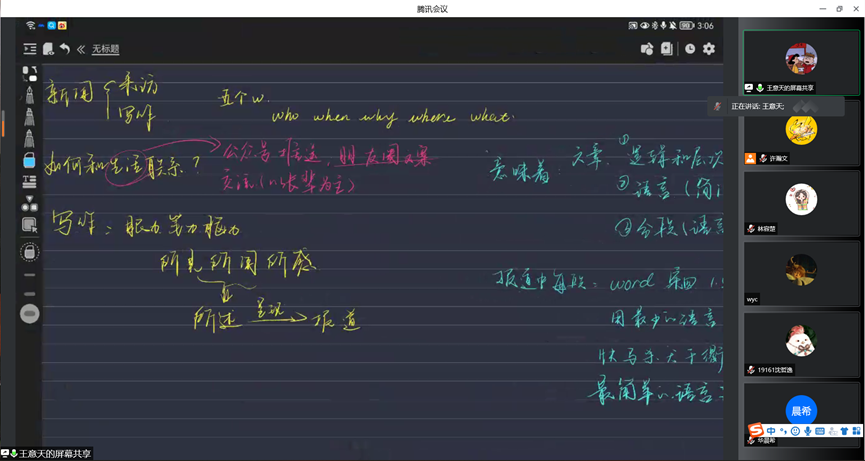 腾讯会议
3:06
无标题
新闻 采访
写作
五个w.
who when why where what.
如何和生活联系？
公众号推送，朋友圈文案
交流(以张辈为主)
写作：眼力 笔力 脑力
所见所闻所感
所述 呈现 报道
意味着：文章：①逻辑和层次
②语言（简洁
③分段（语言
报道中每段：word 第四 1.5
用最少的语言
快马杀
最简单的语言
王意天的屏幕共享
正在讲话: 王意天;
许瀚文
林容楚
wyc
19161沈哲逸
晨希
华晨希
中
王意天的屏幕共享